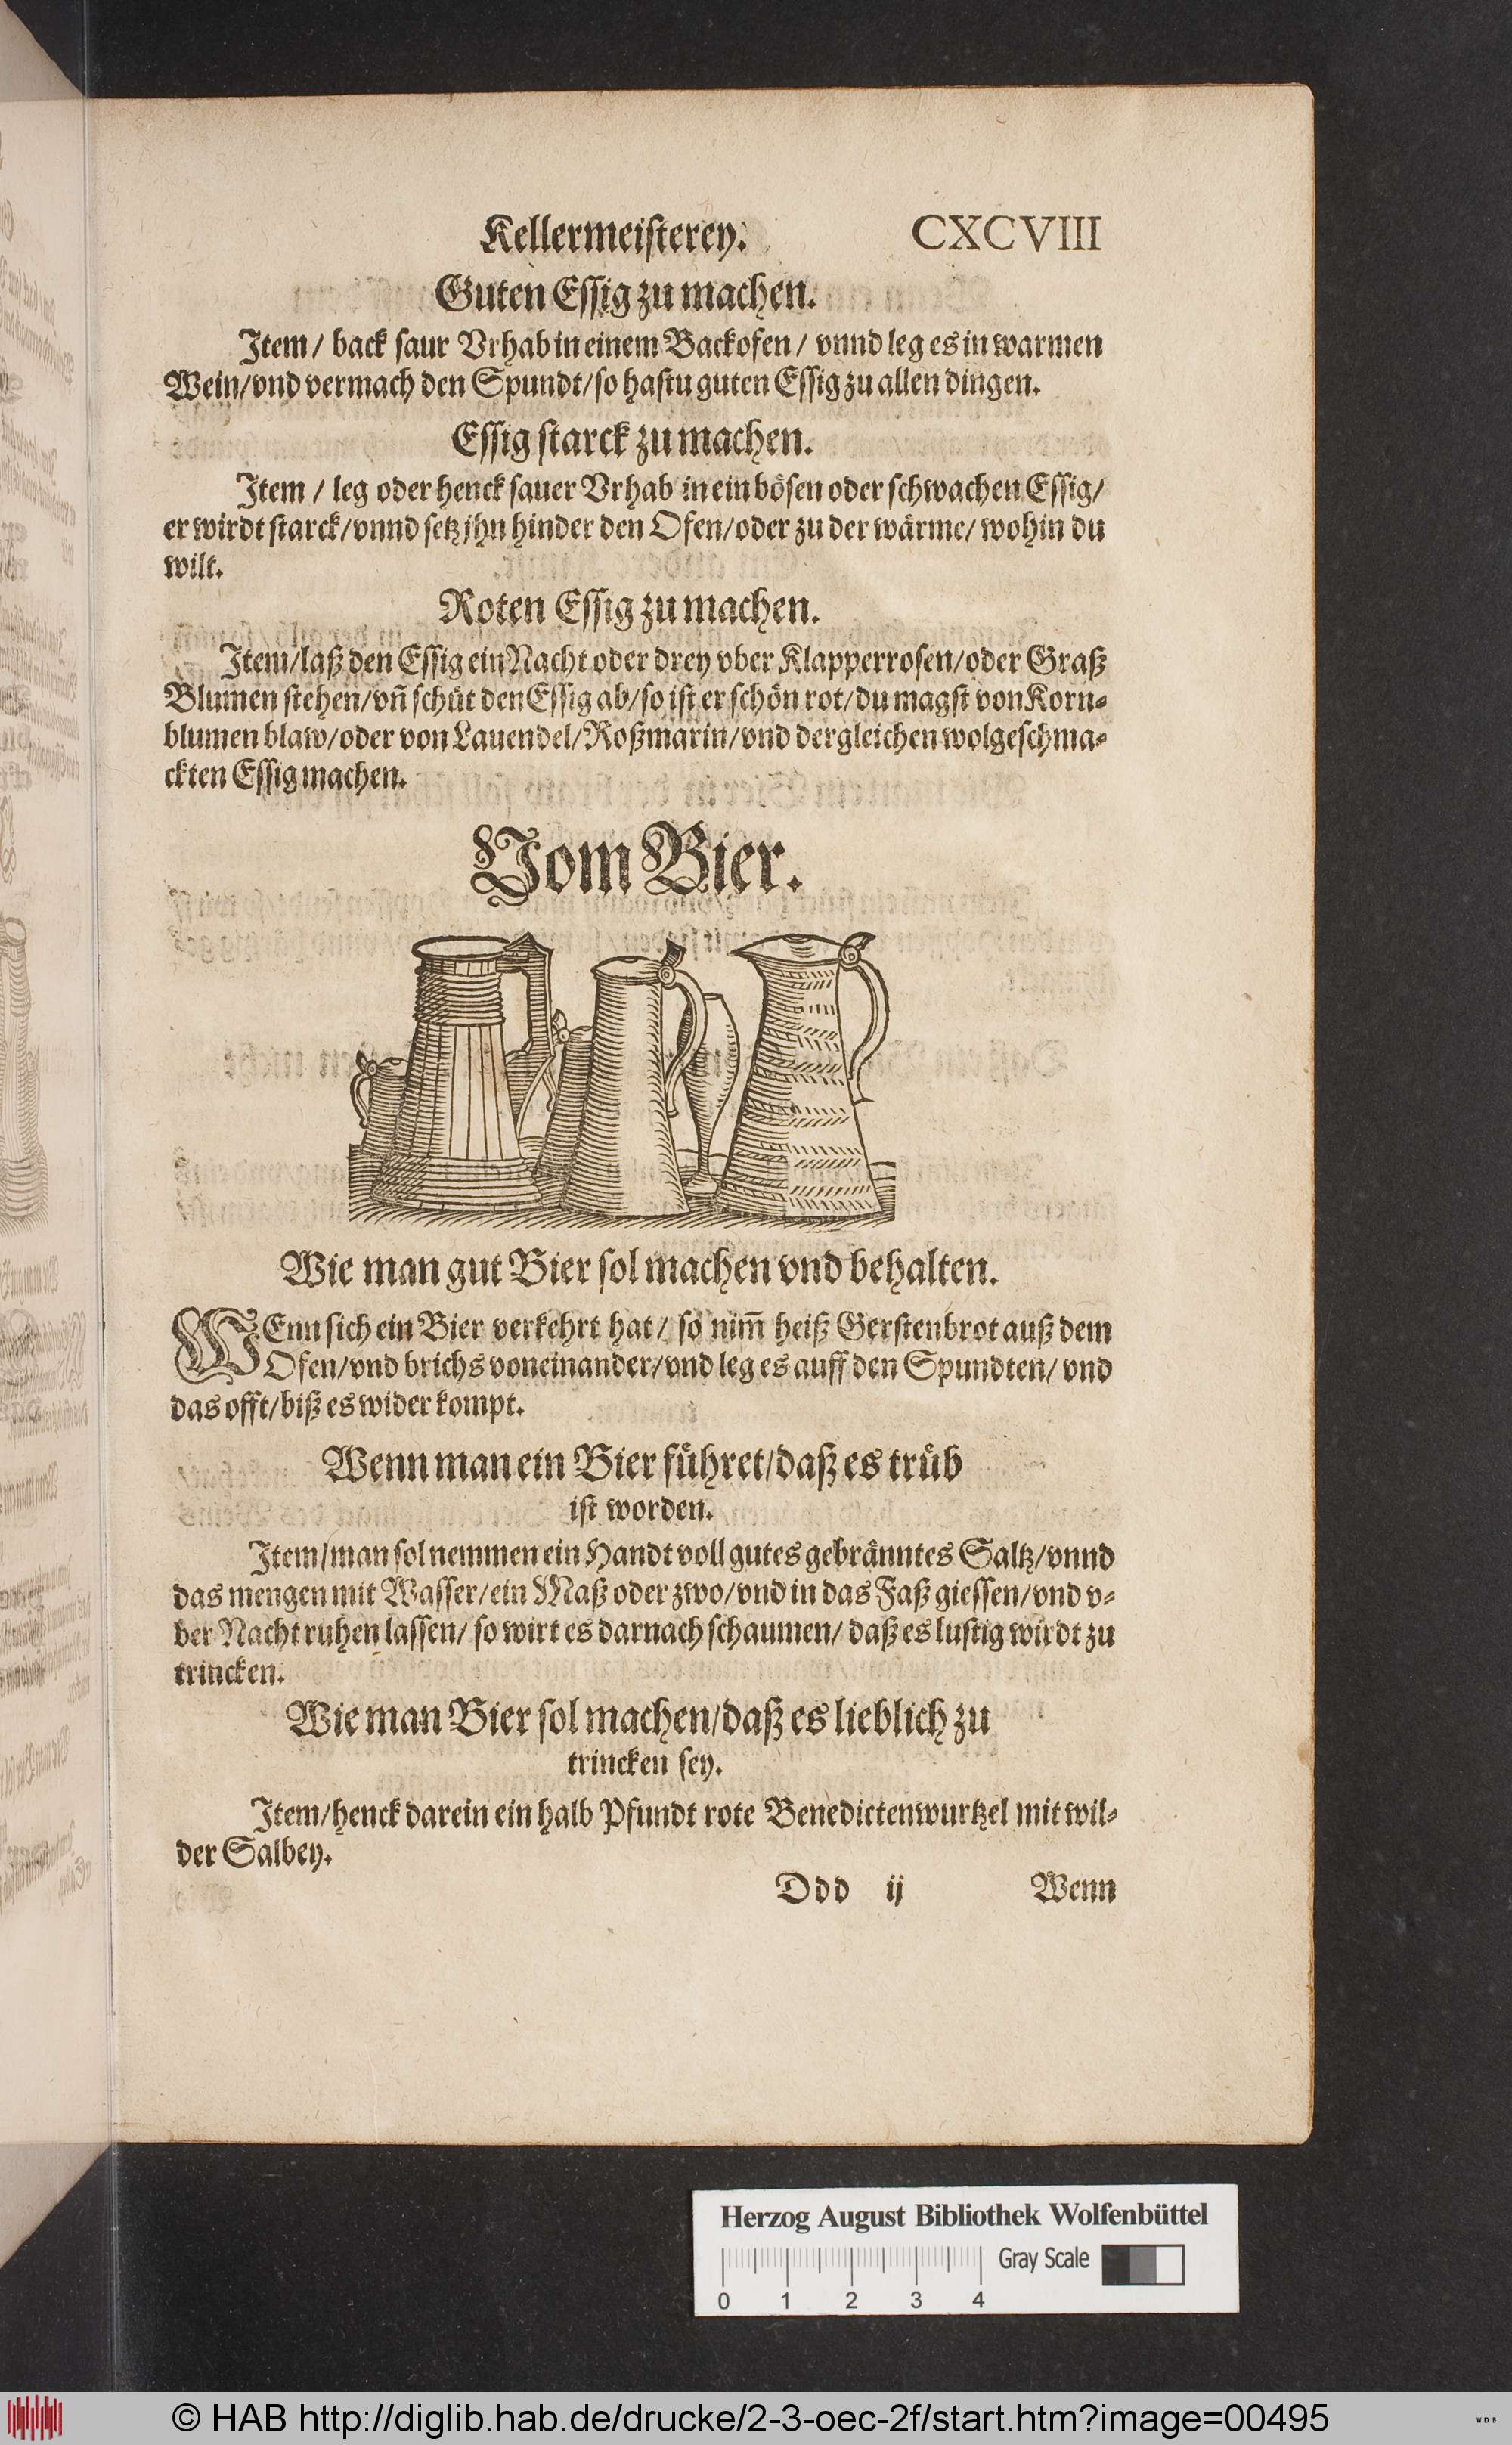 Kellermeisterey. CXCVIII
Guten Essig zu machen.
Item / back saur Vrhab in einem Backofen / vnnd leg es in warmen
Wein/vnd vermach den Spundt/so hastu guten Essig zu allen dingen.
Essig starck zu machen.
Item / leg oder henck sauer Vrhab in ein bösen oder schwachen Essig/
er wirdt starck/vnnd setz jhn hinder den Ofen/oder zu der wärme/ wohin du
wilt.
Roten Essig zu machen.
Item/laß den Essig ein Nacht oder drey vber Klapperrosen/oder Graß
Blumen stehen/vn̄ schüt den Essig ab/so ist er schön rot/du magst von Korn⸗
blumen blaw/oder von Lauendel/Roßmarin/vnd dergleichen wolgeschma⸗
ckten Essig machen.
Vom Bier.
Wie man gut Bier sol machen vnd behalten.
WEnn sich ein Bier verkehrt hat/ so nim̄ heiß Gerstenbrot auß dem
Ofen/vnd brichs voneinander/vnd leg es auff den Spundten/ vnd
das offt/biß es wider kompt.
Wenn man ein Bier führet/daß es trüb
ist worden.
Item/man sol nemmen ein Handt voll gutes gebränntes Saltz/vnnd
das mengen mit Wasser/ein Maß oder zwo/vnd in das Faß giessen/vnd v⸗
ber Nacht ruhen lassen/ so wirt es darnach schaumen/ daß es lustig wirdt zu
trincken.
Wie man Bier sol machen/daß es lieblich zu
trincken sey.
Item/henck darein ein halb Pfundt rote Benedictenwurtzel mit wil⸗
der Salbey.
Ddd ij Wenn
Herzog August Bibliothek Wolfenbüttel
Gray Scale
0 1 2 3 4
© HAB http://diglib.hab.de/drucke/2-3-oec-2f/start.htm?image=00495
WDB